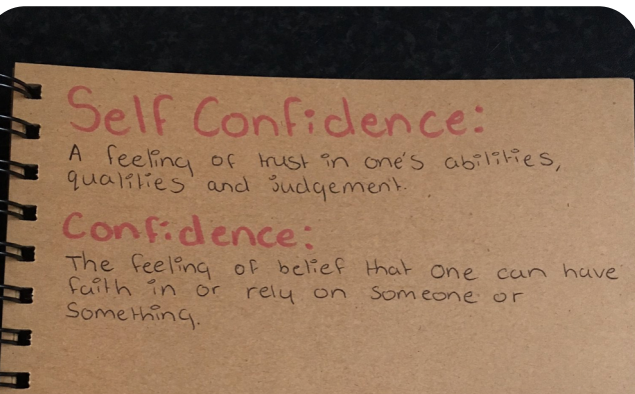 Self Confidence:
A feeling of trust in one's abilities,
qualities and judgement.
Confidence:
The feeling of belief that one can have
faith in or rely on someone or
something.